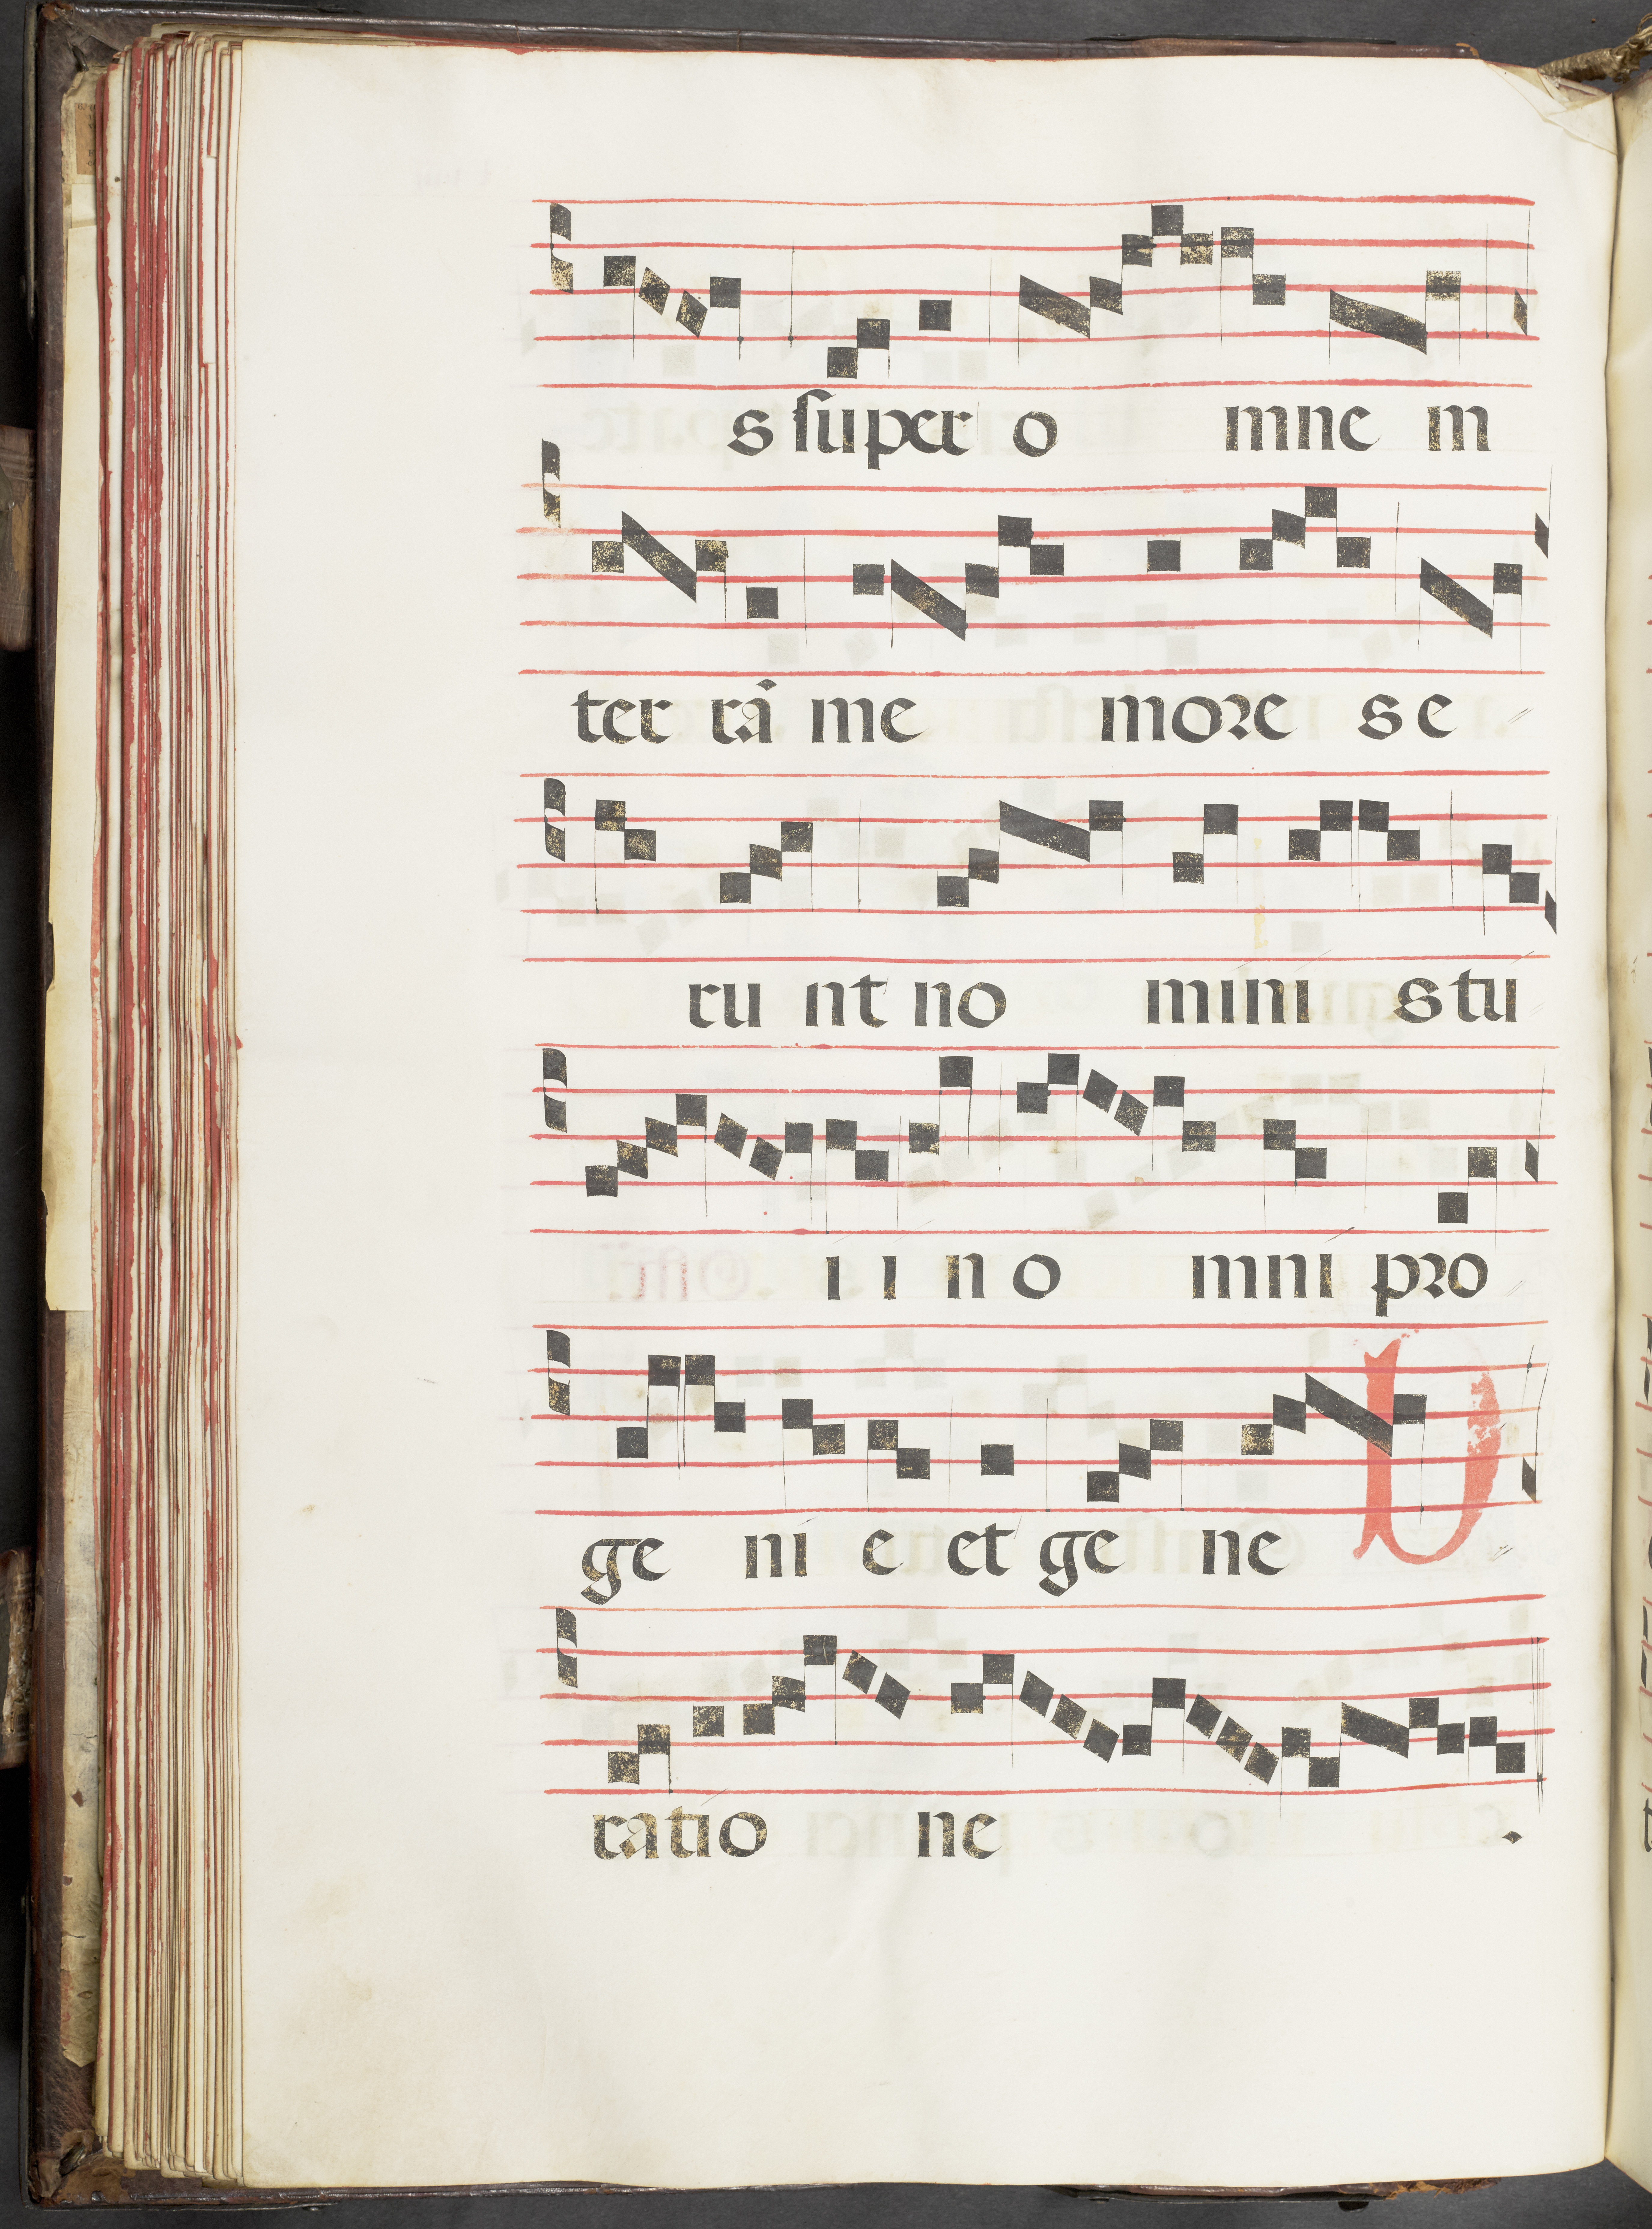 s super o mne in
ter rã me more se
ru nt no mini s tu
i i n o mni pro
ge ni e et ge ne V
ratio ne .